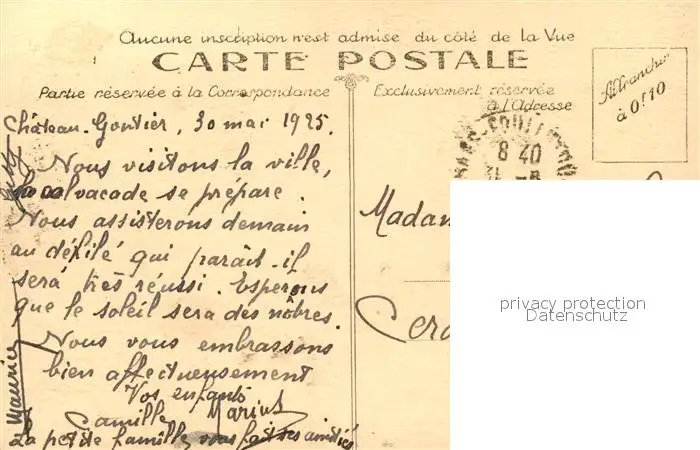 Aucune inscription n'est admise du côté de la Vue
CARTE POSTALE
Partie réservée à la Correspondance
Exclusivement réservée
à l'Adresse
Affranchir
à 0f10
Château-Gontier, 30 mai 1925.
Nous visitons la ville,
la calvacade se prépare.
Nous assisterons demain
au défilé qui paraît-il
sera très réussi. Espérons
que le soleil sera des nôtres.
Nous vous embrassons
bien affectueusement
Vos enfants
Camille Marius
La petite famille vous fait ses amitiés
Maurice
8 40
31 -5
Madam
privacy protection
Datenschutz